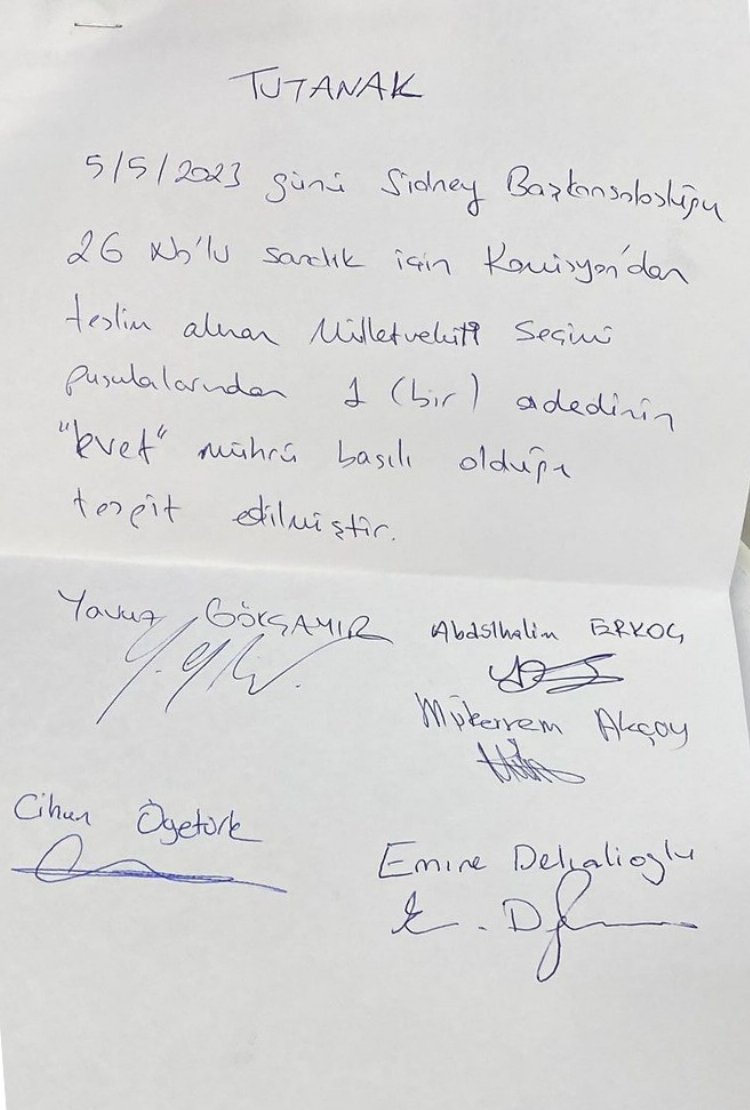 TUTANAK
5/5/2023 günü Sidney Başkonsolosluğu
26 No'lu sandık için Komisyon'dan
teslim alınan Milletvekili Seçimi
pusulalarından 1 (bir) adedinin
"Evet" mührü basılı olduğu
tespit edilmiştir.
Yavuz GÖKÇAMIR Abdslhalim ERKOÇ
Mükerrem Akçoy
Cihan Ögetürk
Emine Delialioglu
E. D